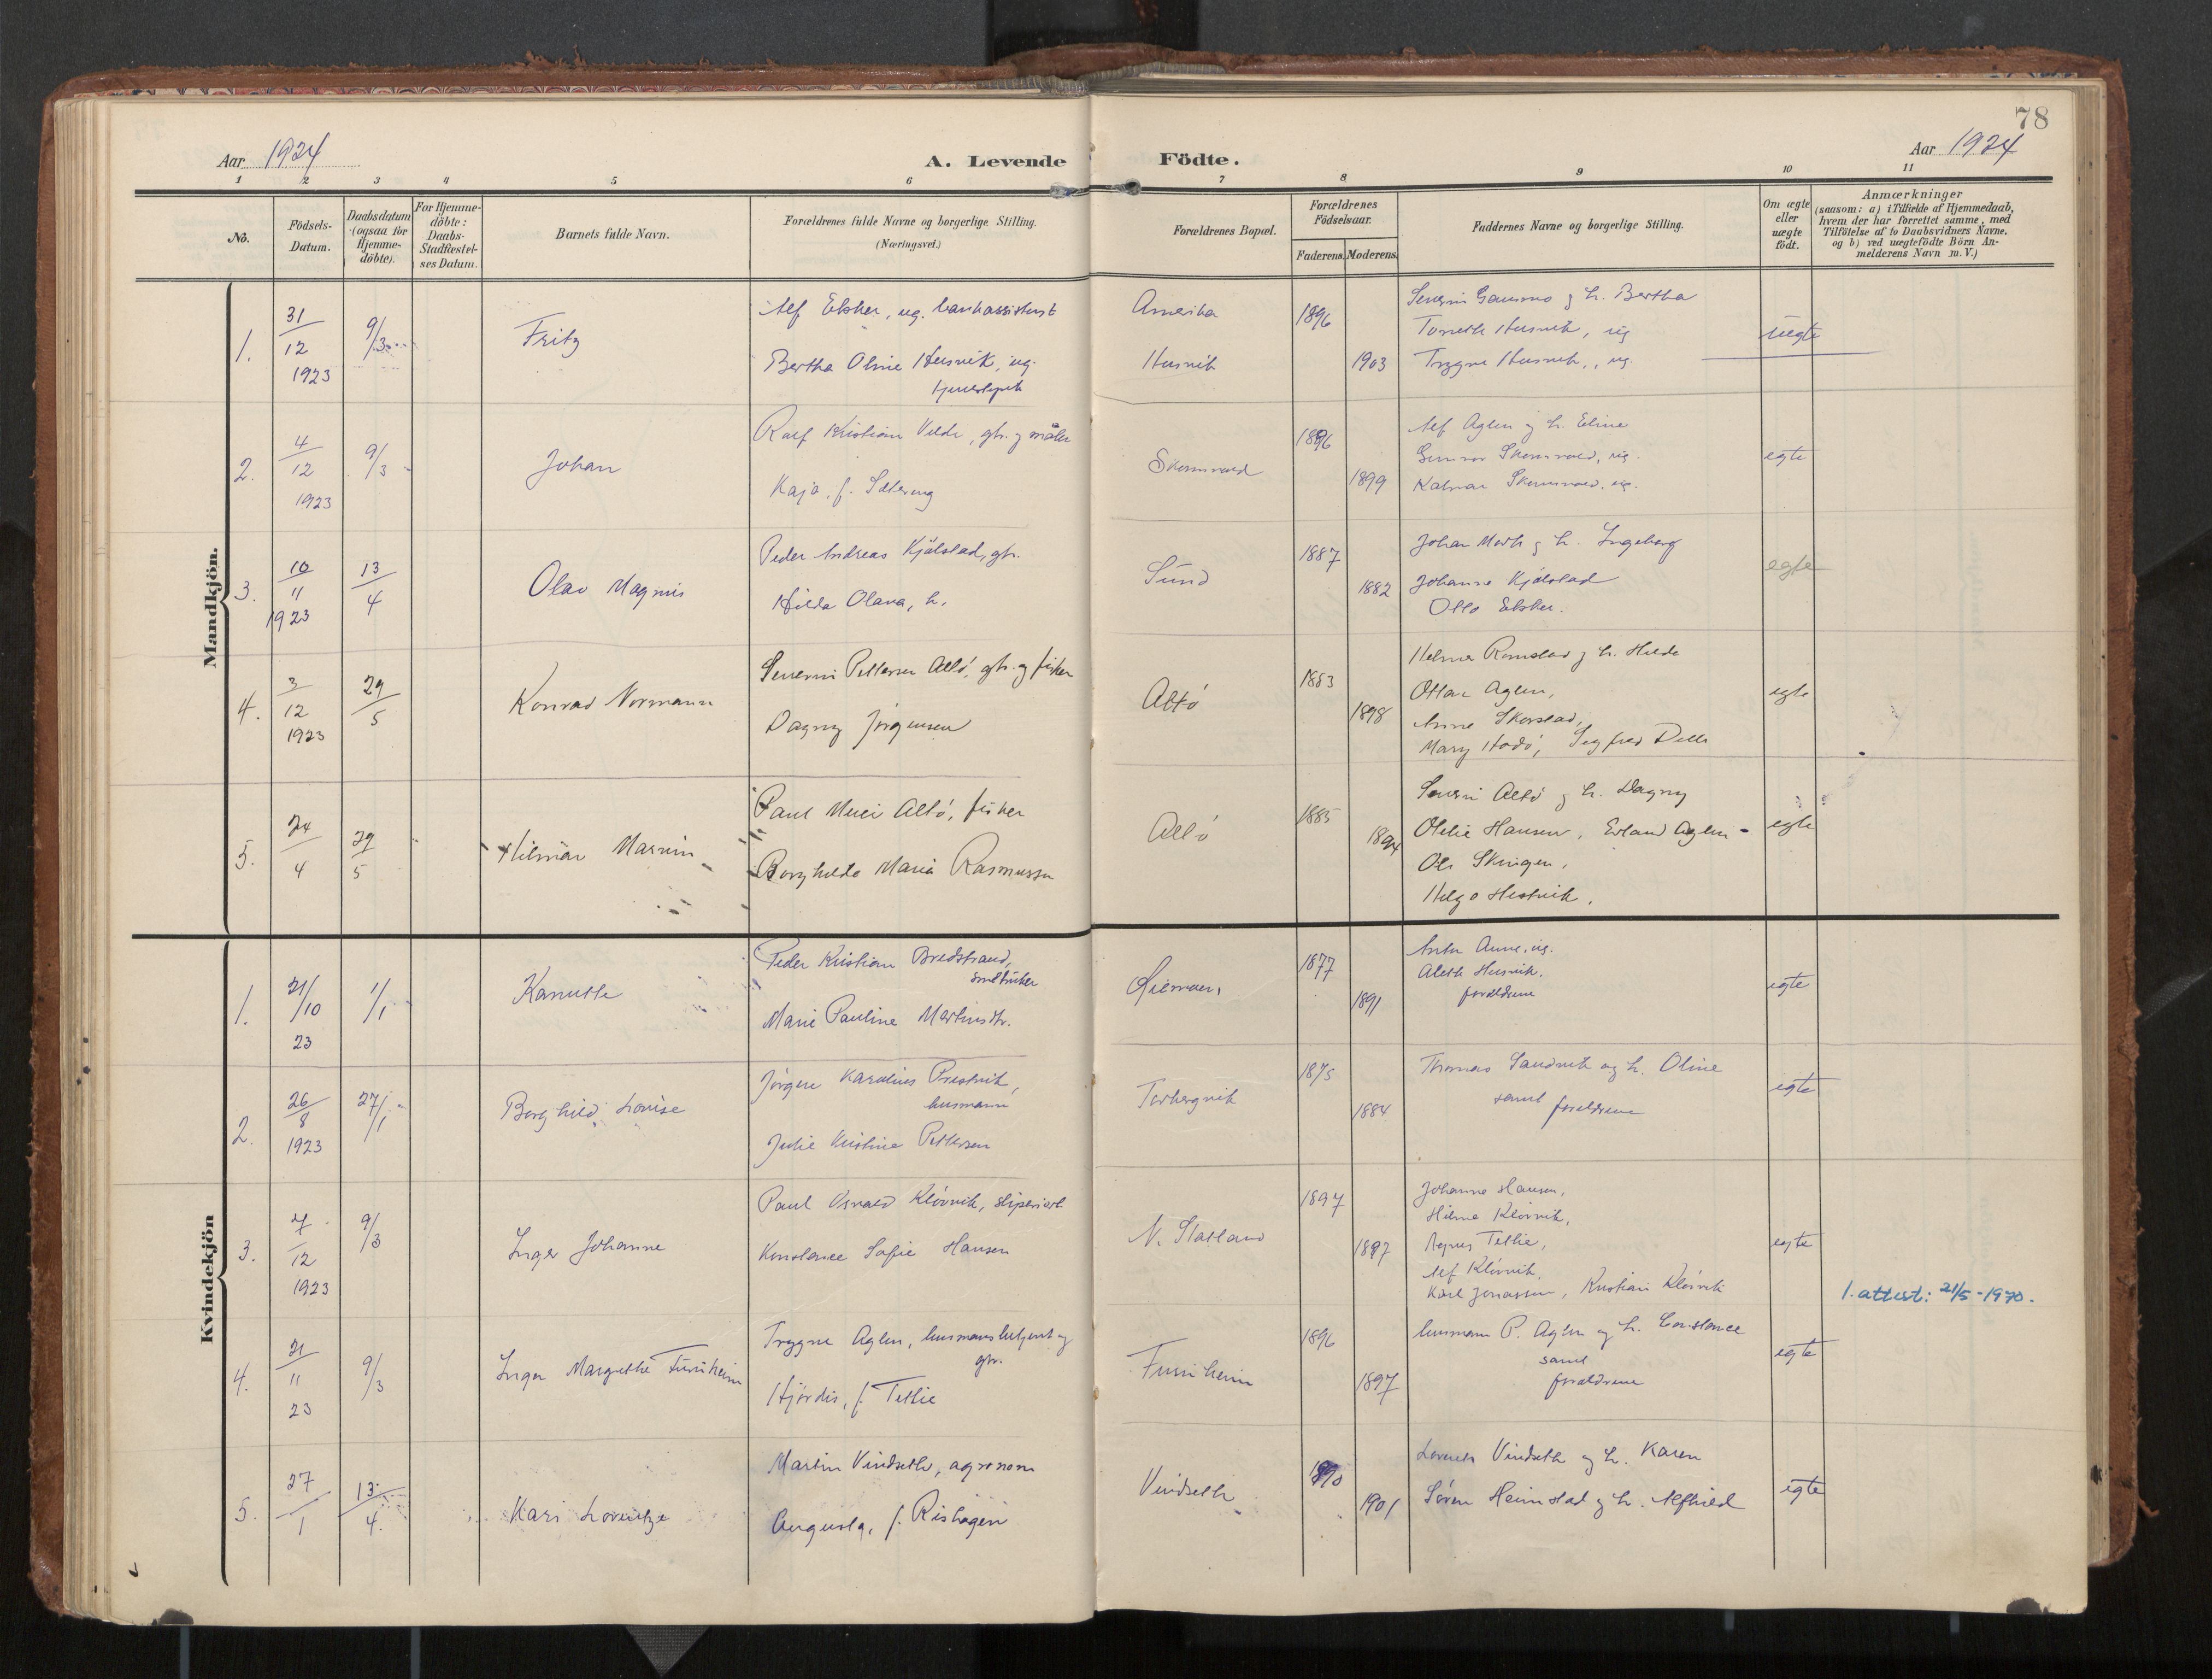 78
Aar 1924
A. Levende Födte.
Aar 1924
1 2 3 4 5 6 7 8 9 10 11
No.
Födsels-Datum.
Daabsdatum (ogsaa for Hjemme-döbte).
For Hjemme-döbte: Daabs-Stadfæstel-ses Datum.
Barnets fulde Navn.
Forældrenes fulde Navne og borgerlige Stilling.
(Næringsvei.)
Forældrenes Bopæl.
Forældrenes Födselsaar.
Faderens. Moderens.
Faddernes Navne og borgerlige Stilling.
Om ægte eller uægte födt.
Anmærkninger
(saasom: a) i Tilfælde af Hjemmedaab, hvem der har forrettet samme, med Tilföielse af to Daabsvidners Navne, og b) ved uægtefödte Börn Anmelderens Navn m. V.)
Mandkjön.
1. 31/12 1923 9/3 Fritz
Alf Elsker, ug. bankassistent Amerika 1896
Bertha Oline Husvik, ug. Husvik 1903
og h. Bertha
Husvik, ug
Trygve Husvik, ug.
uegte
2. 4/12 1923 9/3 Johan
Rolf Kristian Velde, gbr. og maler
Kaja, f. Sætering
Skorsvold 1896 1899
Alf Aglen og h. Eline
Gunvor Skorsvold, ug.
Kalmar Skorsvold, ug.
egte
3. 10/11 1923 13/4 Olav Magnus
Peder Andreas Kjølstad, gbr.
Hilda Olava, h.
Sund 1887 1882
Johan Mork og h. Ingeborg
Johanne Kjølstad
Otto Elsker.
egte
4. 3/12 1923 29/5 Konrad Normann
Severin Pettersen Altø, gbr. og fisker
Dagny Jørgensen
Altø 1883 1898
Helmer Ramstad og h. Hilda
Ottar Aglen,
Anne Skorstad,
Mary Hodø, Sigfred Dell
egte
5. 24/4 29/5 Hilmar Marvin
Paul Meier Altø, fisker
Borghilde Maria Rasmussen
Altø 1885 1894
Severin Altø og h. Dagny
Otelie Hansen, Erland Aglen
Ole Skingen,
Helga Hestvik.
egte
Kvindekjön
1. 21/10 23 1/1 Kanutte
Peder Kristian Bredstrand,
småbruker
Marie Pauline Martinsdtr.
1877 1891
Anne, ug.
Aleth Husvik,
forældrene
egte
2. 26/8 1923 27/1 Borghild Lovise
Jørgen Karolius Prestvik,
husmann
Julie Kristine Pettersen
Torbergvik 1875 1884
Thomas Sandvik og h. Oline
samt forældrene
egte
3. 7/12 1923 9/3 Inger Johanne
Paul Osvald Kløvvik, skiperiarb.
Konstance Sofie Hansen
N. Statland 1897 1897
Johanne Hansen,
Hilma Kløvvik,
Agnes Tetlie,
Alf Kløvvik,
Karl Jonassen, Kristian Kløvvik
egte
1. attest: 21/5 - 1970.
4. 21/11 23 9/3 Inger Margrethe Furuheim
Trygve Aglen, lensmannsbetjent og
gbr.
Hjørdis, f. Tetlie
Furuheim 1896 1897
lensmann P. Aglen og h. Constance
samt
forældrene
egte
5. 27/1 13/4 Kari Lorentze
Martin Vindseth, agronom
Augusta, f. Rishagen
Vindseth 1890 1901
Lorents Vindseth og h. Karen
Søren Heimstad og h. Alfhild
egte